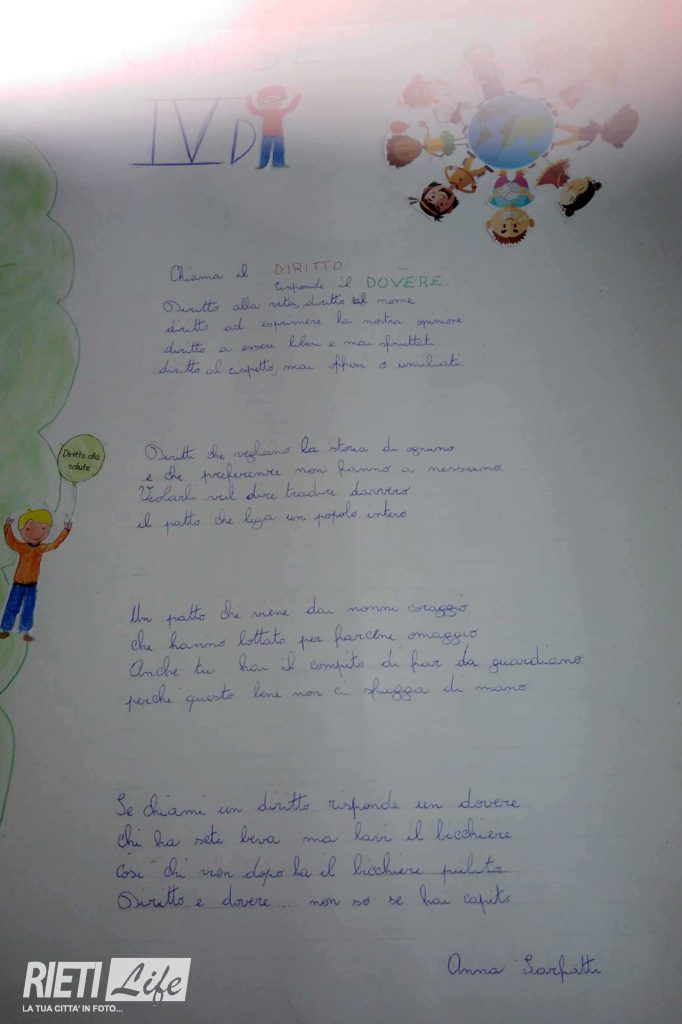 IV D
Chiama il DIRITTO
risponde il DOVERE
Diritto alla vita, diritto al nome
diritto ad esprimere la nostra opinione
diritto a essere liberi e mai sfruttati
diritto al rispetto, mai offesi o umiliati.
Diritto alla
salute
Diritti che vegliano la storia di ognuno
e che preferenze non fanno a nessuno.
Violarli vuol dire tradire davvero
il patto che lega un popolo intero
Un patto che viene dai nonni coraggio
che hanno lottato per farcene omaggio
Anche tu hai il compito di far da guardiano
perché questo bene non ci sfugga di mano
Se chiami un diritto risponde un dovere
chi ha sete beva ma lavi il bicchiere
Così chi vien dopo ha il bicchiere pulito
Diritto e dovere... non so se hai capito
Anna Sarfatti
RIETI Life
LA TUA CITTA' IN FOTO...